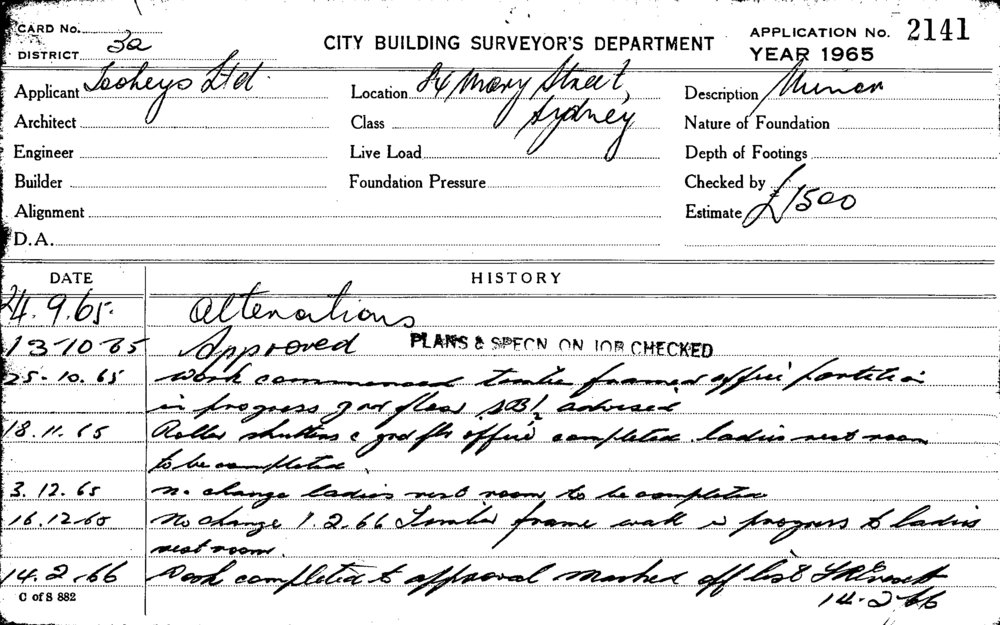 CARD No.
DISTRICT 3a
CITY BUILDING SURVEYOR'S DEPARTMENT
APPLICATION No. 2141
YEAR 1965
Applicant Tooheys Ltd.
Location 84 Mary Street,
Sydney
Description Minor
Architect
Class
Nature of Foundation
Engineer
Live Load
Depth of Footings
Builder
Foundation Pressure
Checked by
Alignment
Estimate £1500
D.A.
DATE HISTORY
24.9.65. Alterations
13-10-65 Approved PLANS & SPECN ON JOB CHECKED
25-10.65 Work commenced timber framed office partition
in progress grd floor advised
18.11.65 Roller shutters & grd flr office completed. ladies rest room
to be completed.
3.12.65 no change ladies rest room to be completed
16.12.65 No change 1.2.66 Timber frame work in progress to ladies
rest room.
14.2.66 Work completed to approval marked off list
14-2-66
C of S 882